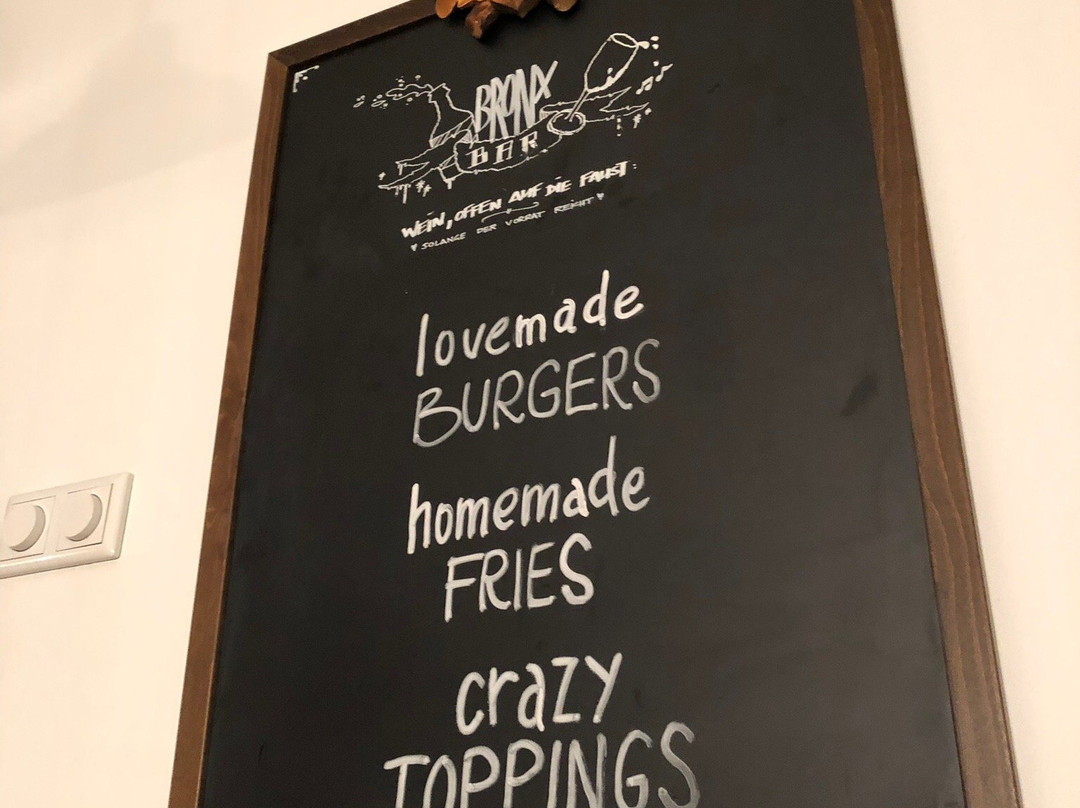 BRONX
BAR
WEIN, OFFEN AUF DIE FAUST:
SOLANGE DER VORRAT REICHT
lovemade
BURGERS
homemade
FRIES
crazy
TOPPINGS